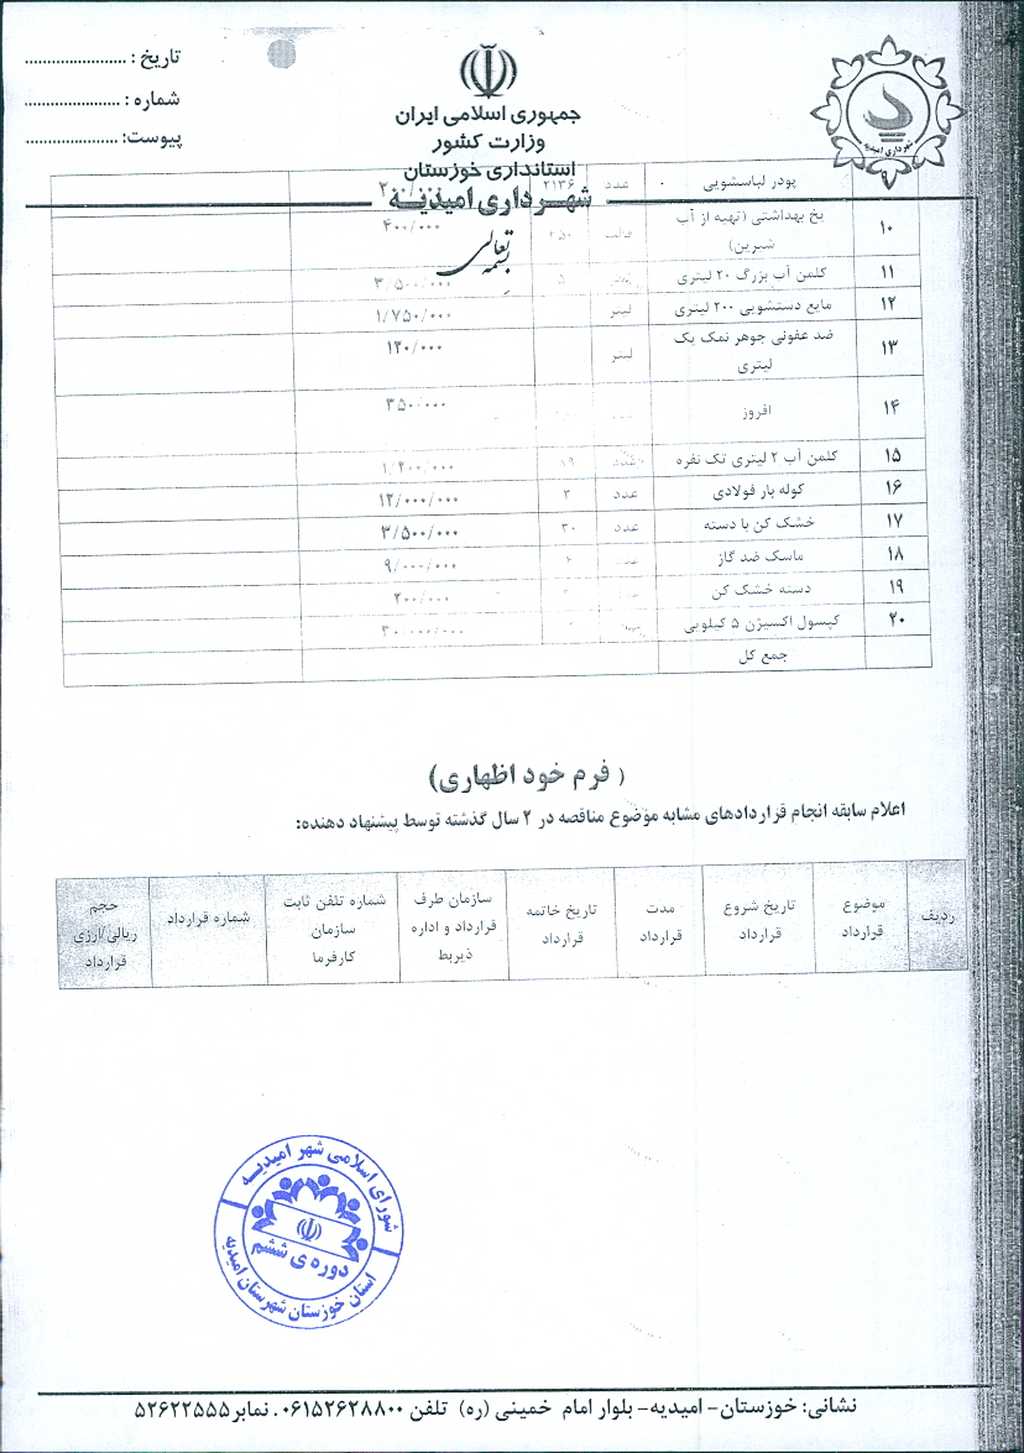 تاریخ : ......................
شماره : .....................
پیوست: ....................
جمهوری اسلامی ایران
وزارت کشور
استانداری خوزستان
شهرداری امیدیه
شهرداری امیدیه
بسمه تعالی
۹ پودر لباسشویی عدد ۲۱۳۶
۱۰ یخ بهداشتی (تهیه از آب شیرین) قالب ۲۵۰ ۴۰۰/۰۰۰
۱۱ کلمن آب بزرگ ۲۰ لیتری ۵ ۳/۵۰۰/۰۰۰
۱۲ مایع دستشویی ۲۰۰ لیتری لیتر ۱/۷۵۰/۰۰۰
۱۳ ضد عفونی جوهر نمک یک لیتری لیتر ۱۲۰/۰۰۰
۱۴ افروز ۳۵۰/۰۰۰
۱۵ کلمن آب ۲ لیتری تک نفره عدد ۱۹ ۱/۲۰۰/۰۰۰
۱۶ کوله بار فولادی عدد ۳ ۱۲/۰۰۰/۰۰۰
۱۷ خشک کن با دسته عدد ۳۰ ۳/۵۰۰/۰۰۰
۱۸ ماسک ضد گاز ۹/۰۰۰/۰۰۰
۱۹ دسته خشک کن ۲۰۰/۰۰۰
۲۰ کپسول اکسیژن ۵ کیلویی ۳۰/۰۰۰/۰۰۰
جمع کل
( فرم خود اظهاری)
اعلام سابقه انجام قراردادهای مشابه موضوع مناقصه در ۲ سال گذشته توسط پیشنهاد دهنده:
ردیف
موضوع قرارداد
تاریخ شروع قرارداد
مدت قرارداد
تاریخ خاتمه قرارداد
سازمان طرف قرارداد و اداره ذیربط
شماره تلفن ثابت سازمان کارفرما
شماره قرارداد
حجم ریالی/ارزی قرارداد
شورای اسلامی شهر امیدیه
دوره ی ششم
استان خوزستان شهرستان امیدیه
نشانی: خوزستان- امیدیه- بلوار امام خمینی (ره) تلفن ۰۶۱۵۲۶۲۸۸۰۰. نمابر۵۲۶۲۲۵۵۵